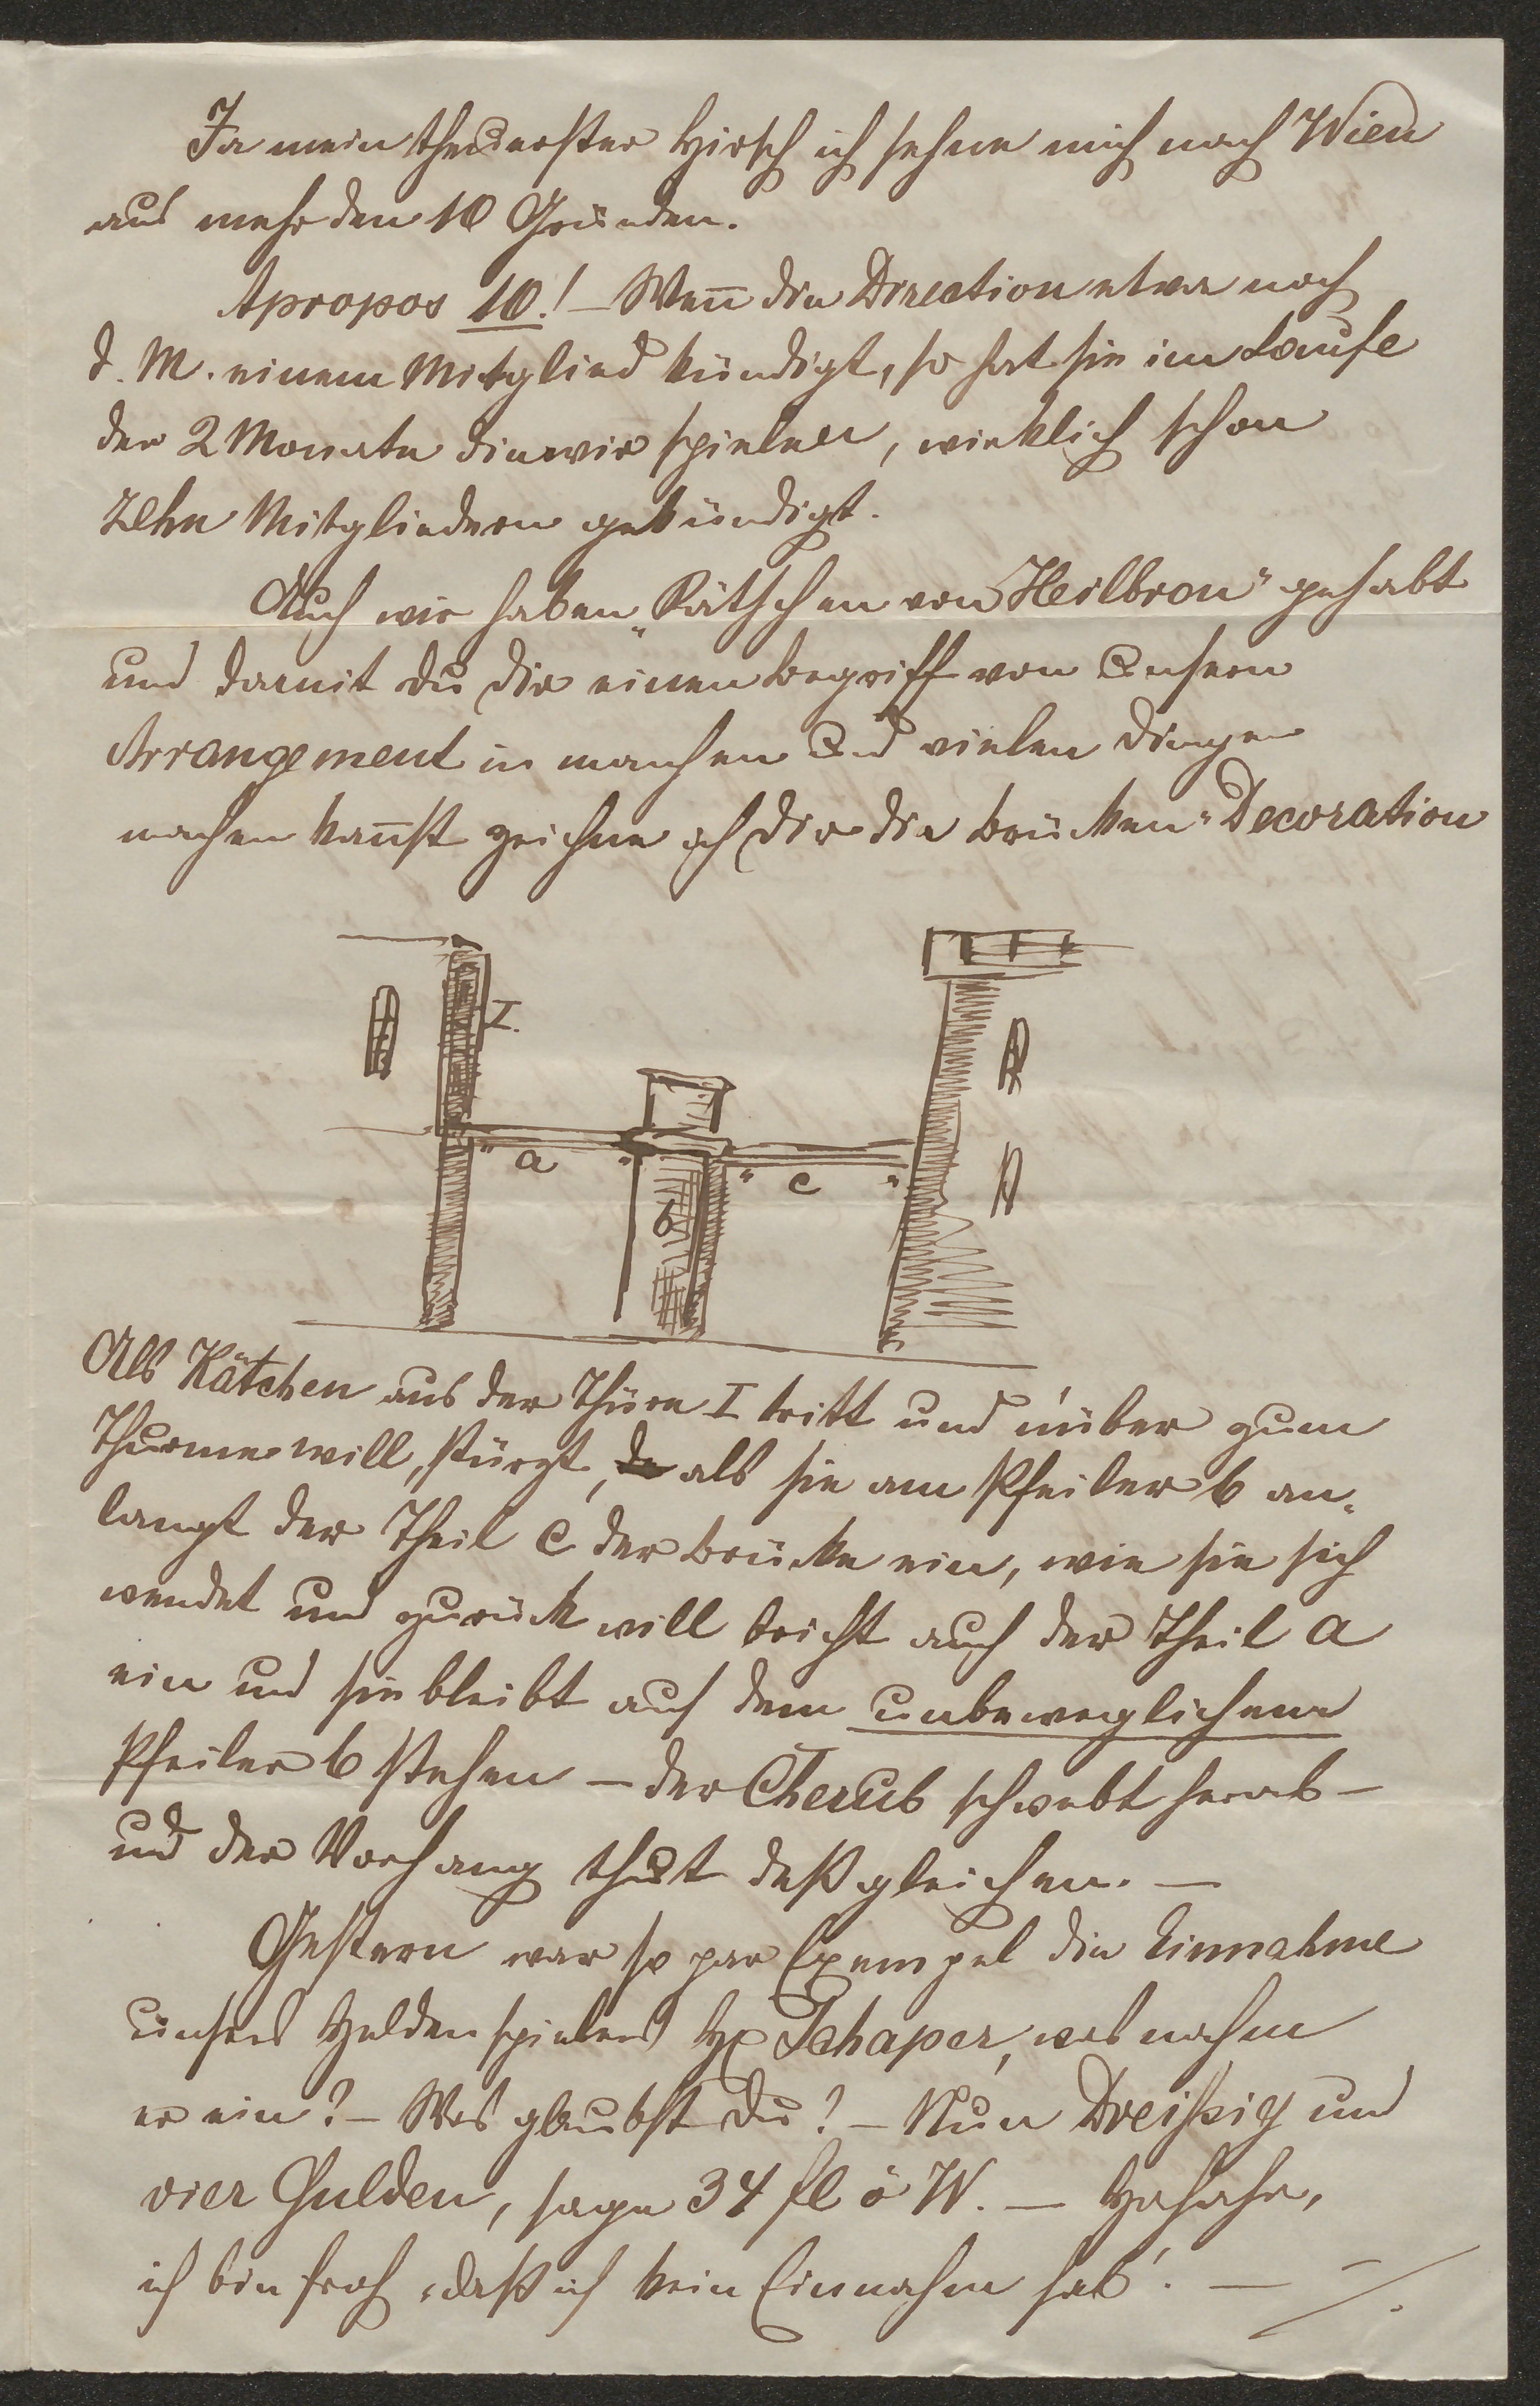 Ja mein theuerster Hirsch ich sehne mich nach Wien
aus mehr den 10 Gründen.
Apropos 10! – Wen̄ die Direction etwa noch
d. M. einem Mitglied kündigt, so hat sie im Laufe
der 2 Monate die wir spielen, wirklich schon
zehn Mitgliedern gekündigt.
Auch wir haben „Kätchen von Heilbron" gehabt
und damit du dir einen Begriff von unsern
Arrangement in manchen und vielen Dingen
machen kan̄st zeichne ich dir die Brücken-Decoration
I.
„ a „
b
„ c „
Als Kätchen aus der Thüre I tritt und 'nüber zum
Thurme will, stürzt, als sie am Pfeiler b an-
langt der Theil c der Brücke ein, wie sie sich
wendet und zurück will bricht auch der Theil a
ein und sie bleibt auf dem unbeweglichen
Pfeiler b stehen – der Cherub schwebt herab –
und der Vorhang thut deßgleichen. –
Gestern war so par Exempel die Einnahme
unsers Heldenspielers H. Schaper, was nahm
er ein? – Was glaubst du? – Nun Dreißig und
vier Gulden, sage 34 fl ö W. – Hahaha,
ich bin froh, daß ich kein Einnahm hab'. – ./.